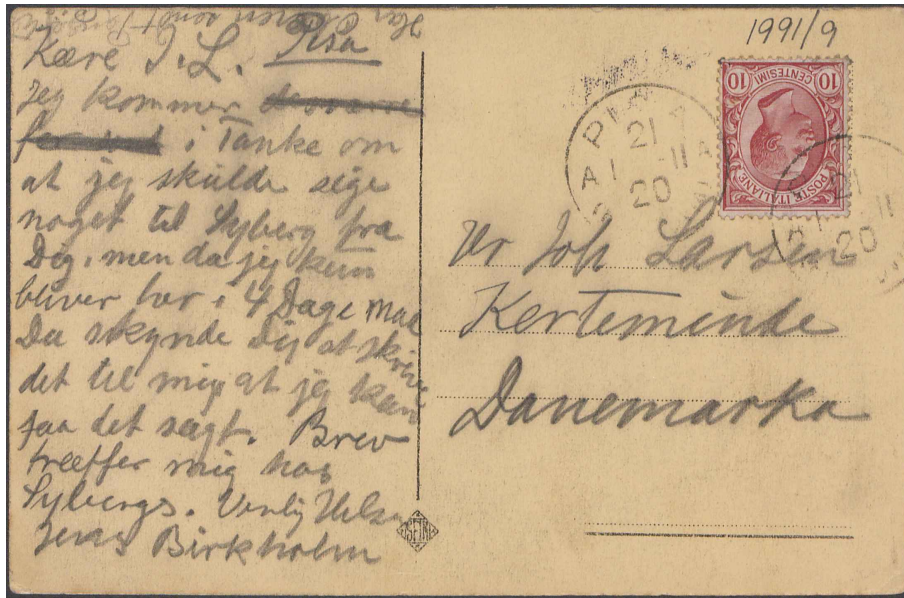 Kære I.L. Pisa
Jeg kommer
i Tanke om
at jeg skulde sige
noget til Syberg fra
Dig, men da jeg kun
bliver her i 4 Dage maa
Du skynde Dig at skrive
det til mig, at jeg kan
faa det sagt. Brev
træffer mig hos
Sybergs. Venlig Hilsen
Jens Birkholm
1991/9
10 CENTESIMI 10
POSTE ITALIANE
21
20
21
20
Joh Larsen
Kerteminde
Danemarka